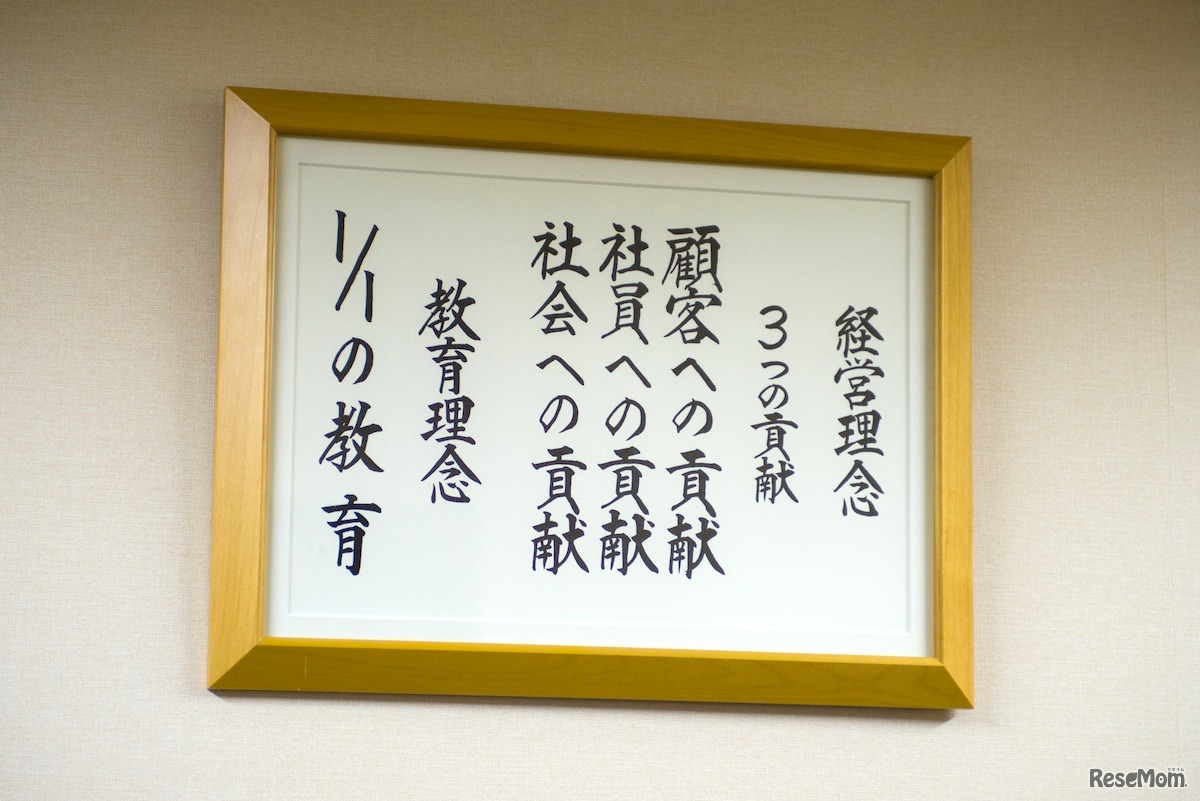 経営理念
3つの貢献
顧客への貢献
社員への貢献
社会への貢献
教育理念
1/1の教育
ReseMom
リセマム